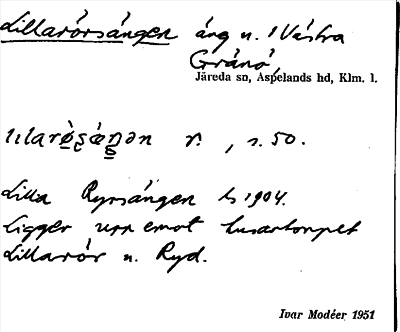 Lillarörsängen äng u. Västra
Gränö,
Järeda sn, Aspelands hd, Klm. l.
r. , s. 50.
Lilla Ryrsängen Ls 1904.
Ligger upp emot husartorpet
Lillarör u. Ryd.
Ivar Modéer 1951